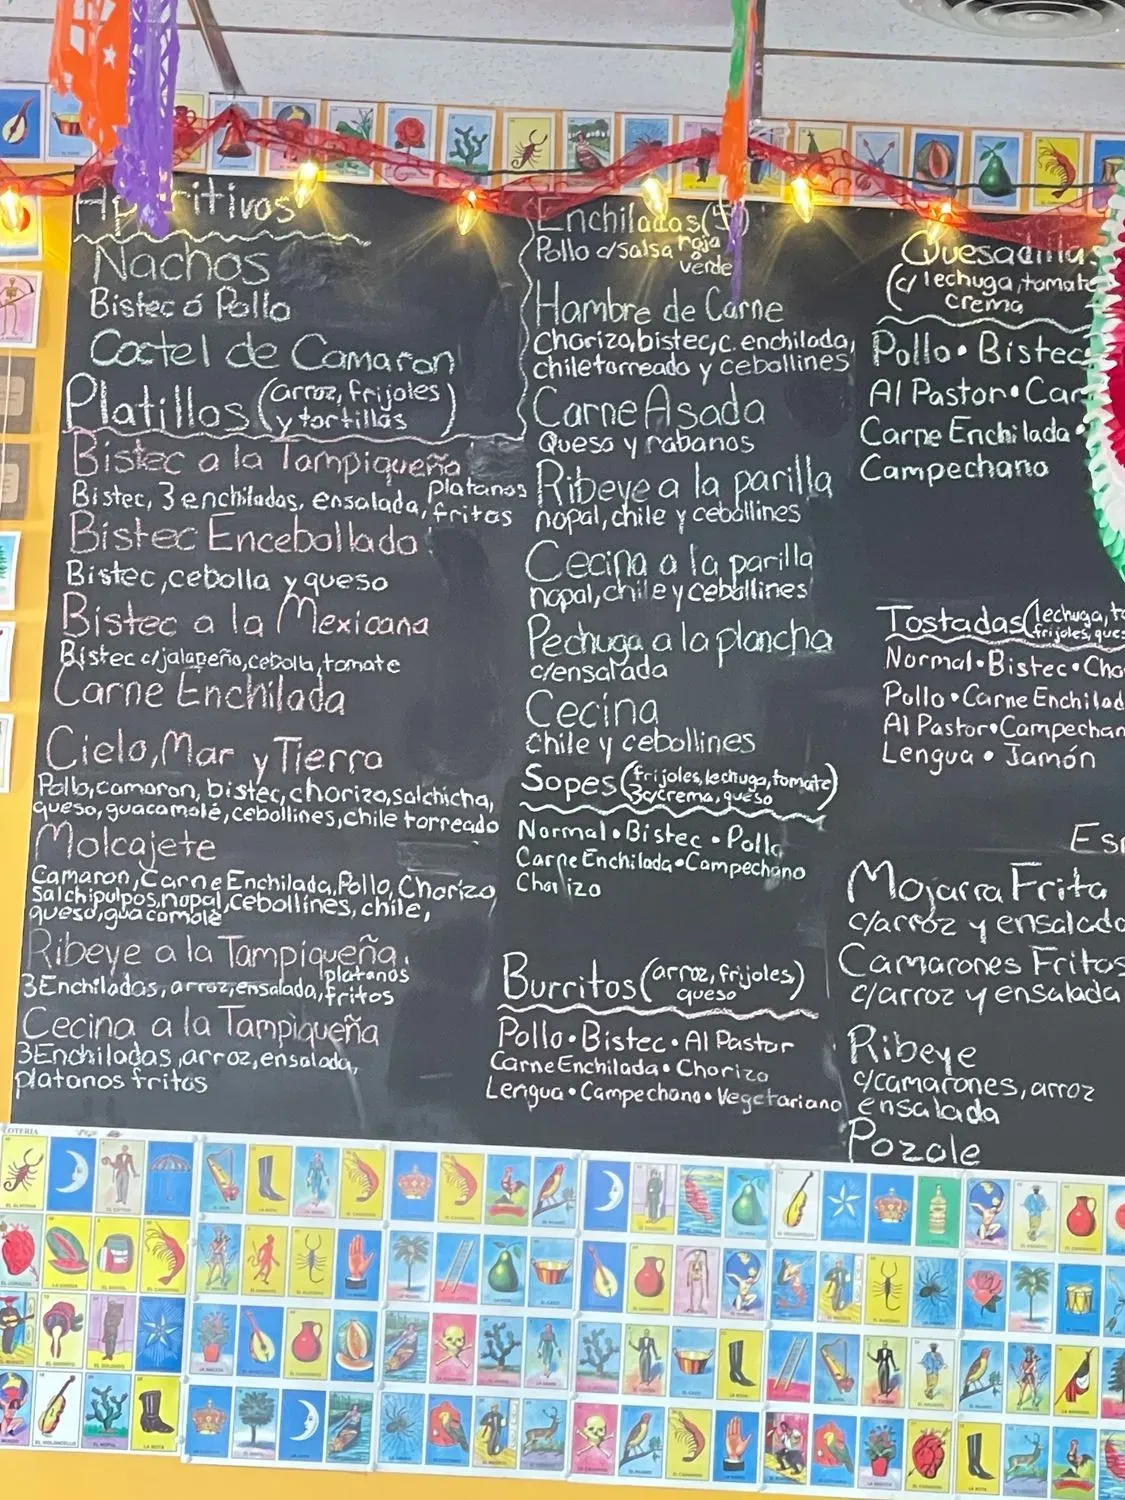 Aperitivos
Nachos
Bistec ó Pollo
Coctel de Camaron
Platillos (arroz, frijoles
y tortillas)
Bistec a la Tampiqueña
Bistec, 3 enchiladas, ensalada, platanos
fritos
Bistec Encebollado
Bistec, cebolla y queso
Bistec a la Mexicana
Bistec c/jalapeño, cebolla, tomate
Carne Enchilada
Cielo, Mar y Tierra
Pollo, camaron, bistec, chorizo, salchicha,
queso, guacamole, cebollines, chile torreado
Molcajete
Camaron, Carne Enchilada, Pollo, Chorizo
Salchipulpos, nopal, cebollines, chile,
queso, guacamole
Ribeye a la Tampiqueña
3 Enchiladas, arroz, ensalada, platanos
fritos
Cecina a la Tampiqueña
3 Enchiladas, arroz, ensalada,
platanos fritos
Enchiladas
Pollo c/salsa roja
o
verde
Hambre de Carne
Chorizo, bistec, c. enchilada,
chile torreado y cebollines
Carne Asada
Queso y rabanos
Ribeye a la parilla
nopal, chile y cebollines
Cecina a la parilla
nopal, chile y cebollines
Pechuga a la plancha
c/ensalada
Cecina
chile y cebollines
Sopes (frijoles, lechuga, tomate)
3 c/crema, queso
Normal • Bistec • Pollo
Carne Enchilada • Campechano
Chorizo
Burritos (arroz, frijoles)
queso
Pollo • Bistec • Al Pastor
Carne Enchilada • Chorizo
Lengua • Campechano • Vegetariano
Quesadillas
(c/ lechuga, tomate
crema
Pollo • Bistec
Al Pastor • Car
Carne Enchilada •
Campechano
Tostadas (lechuga, to
frijoles, ques
Normal • Bistec • Cho
Pollo • Carne Enchilad
Al Pastor • Campechan
Lengua • Jamón
Es
Mojarra Frita
c/arroz y ensalada
Camarones Fritos
c/arroz y ensalada
Ribeye
c/camarones, arroz
ensalada
Pozole
LOTERIA